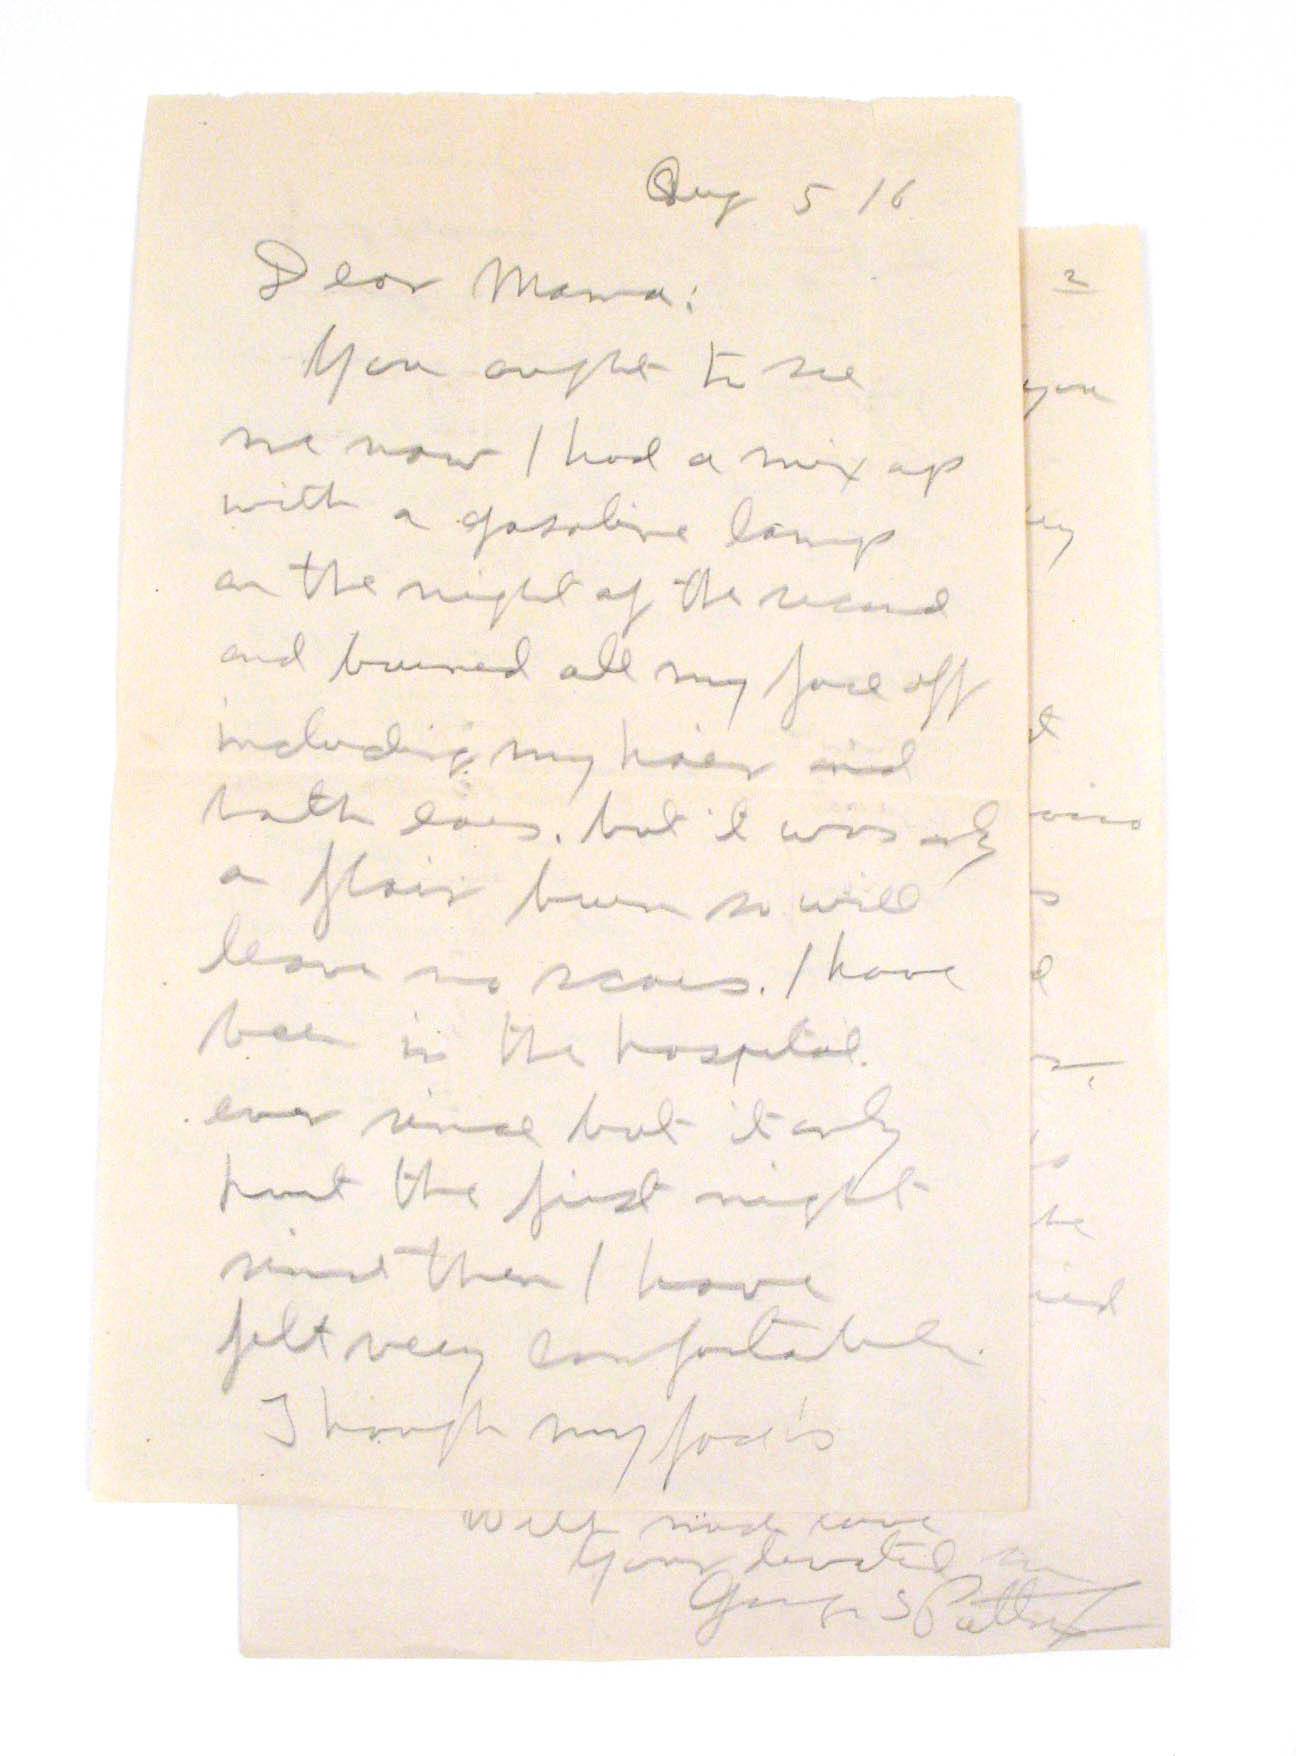 Aug 5 16
Dear Mama:
You ought to see
me now I had a mix up
with a gasoline lamp
on the night of the second
and burned all my face off
including my hair and
both ears. but it was only
a flair burn so will
leave no scars. I have
been in the hospital.
ever since but it only
hurt the first night
since then I have
felt very comfortable.
Though my face is
2
you
With much love
Your devoted son
George S Patton